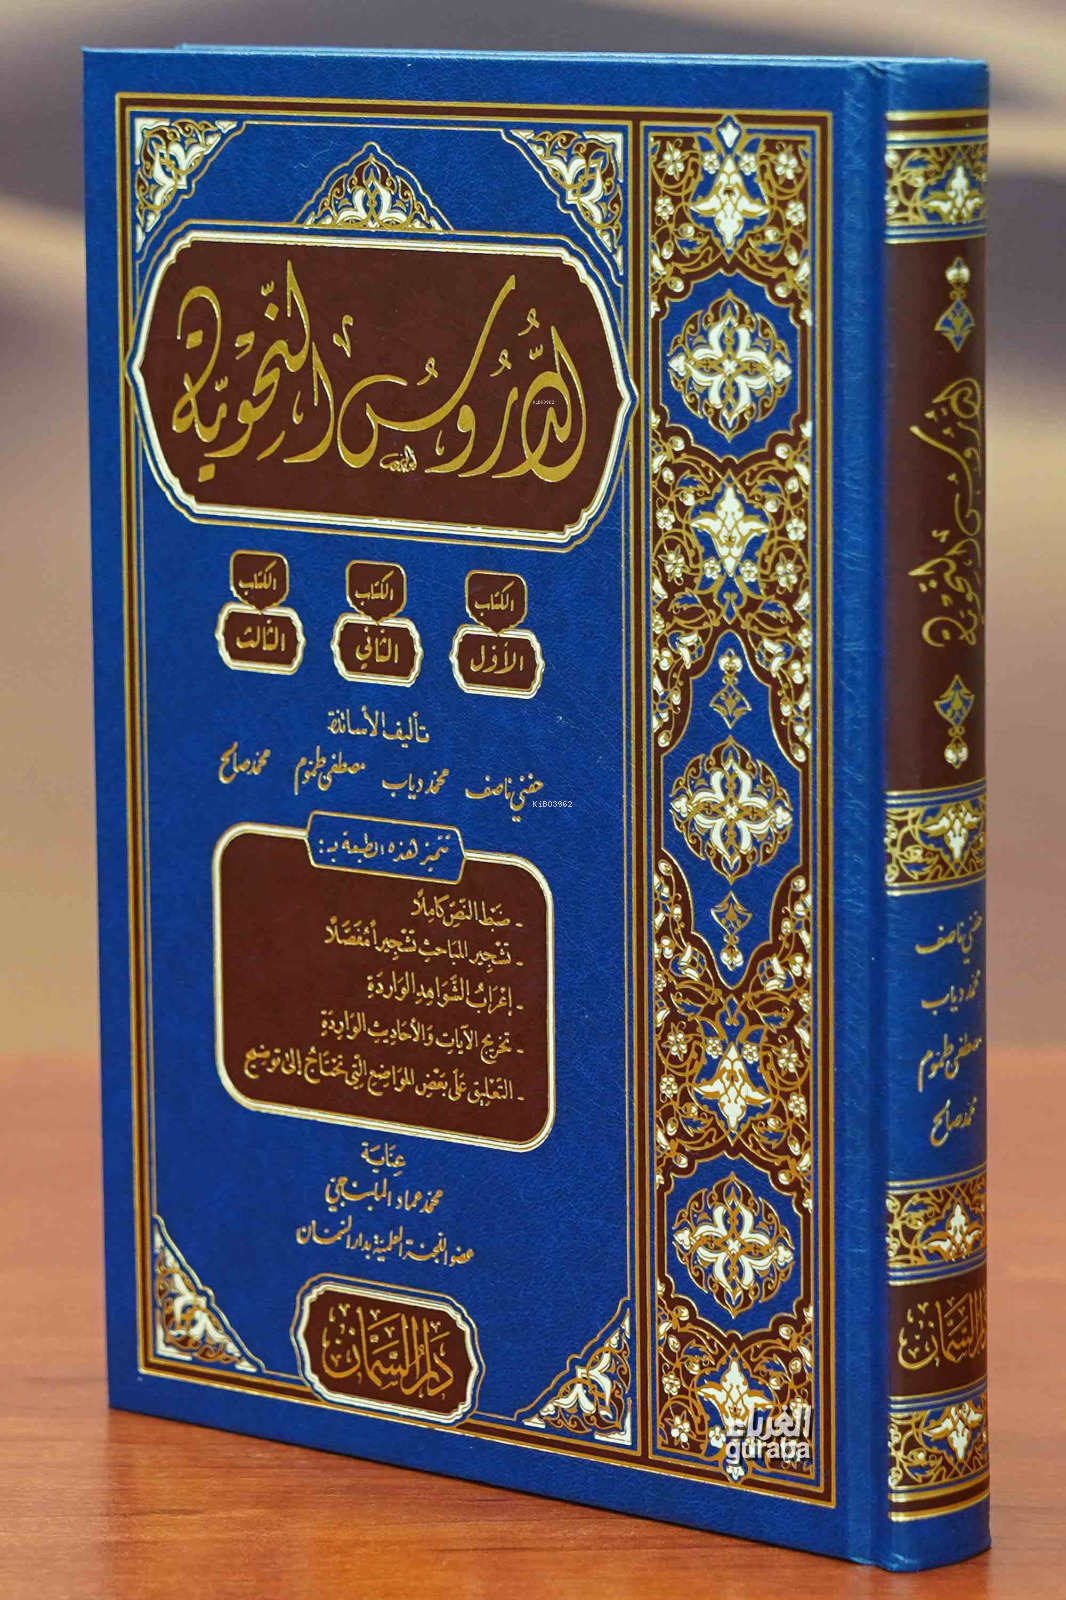 الدُّرُوسُ النَّحْوِيَّة
الكتاب الأوّل
الكتاب الثاني
الكتاب الثالث
تأليف الأساتذة
حفني ناصف محمد دياب مصطفى طموم محمد صالح
تتميّز هذه الطبعة بـ :
- ضَبْط النَّصّ كَامِلًا
- تَشْجِير المَبَاحِث تَشْجِيرًا مُفَصَّلًا
- إِعْرَابُ الشَّوَاهِدِ الوَارِدَةِ
- تخريج الآيَاتِ وَالأَحَادِيثِ الوَارِدَةِ
- التَّعْلِيق عَلَى بَعْضِ المَوَاضِعِ الَّتِي تَحْتَاجُ إلى تَوضِيح
عِنَايَة
محمد عماد المبنجي
عضو اللجنة العلمية بدار السمان
دَارُ السَّمَّان
KiB03962
KiB03962
الدُّرُوسُ النَّحْوِيَّة
حفني ناصف
محمد دياب
مصطفى طموم
محمد صالح
دَارُ السَّمَّان
الغرباء
guraba